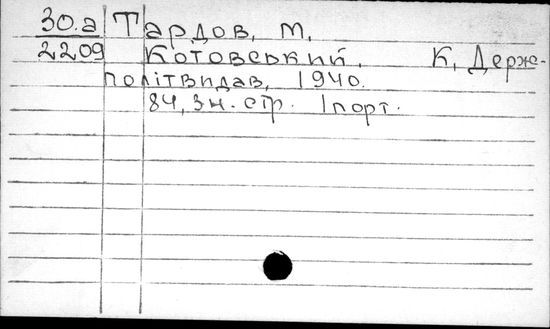 30.а Тардов, М.
2209 Котовський. К, Держ-
політвидав, 1940.
84, 3 н. стр. 1 порт.